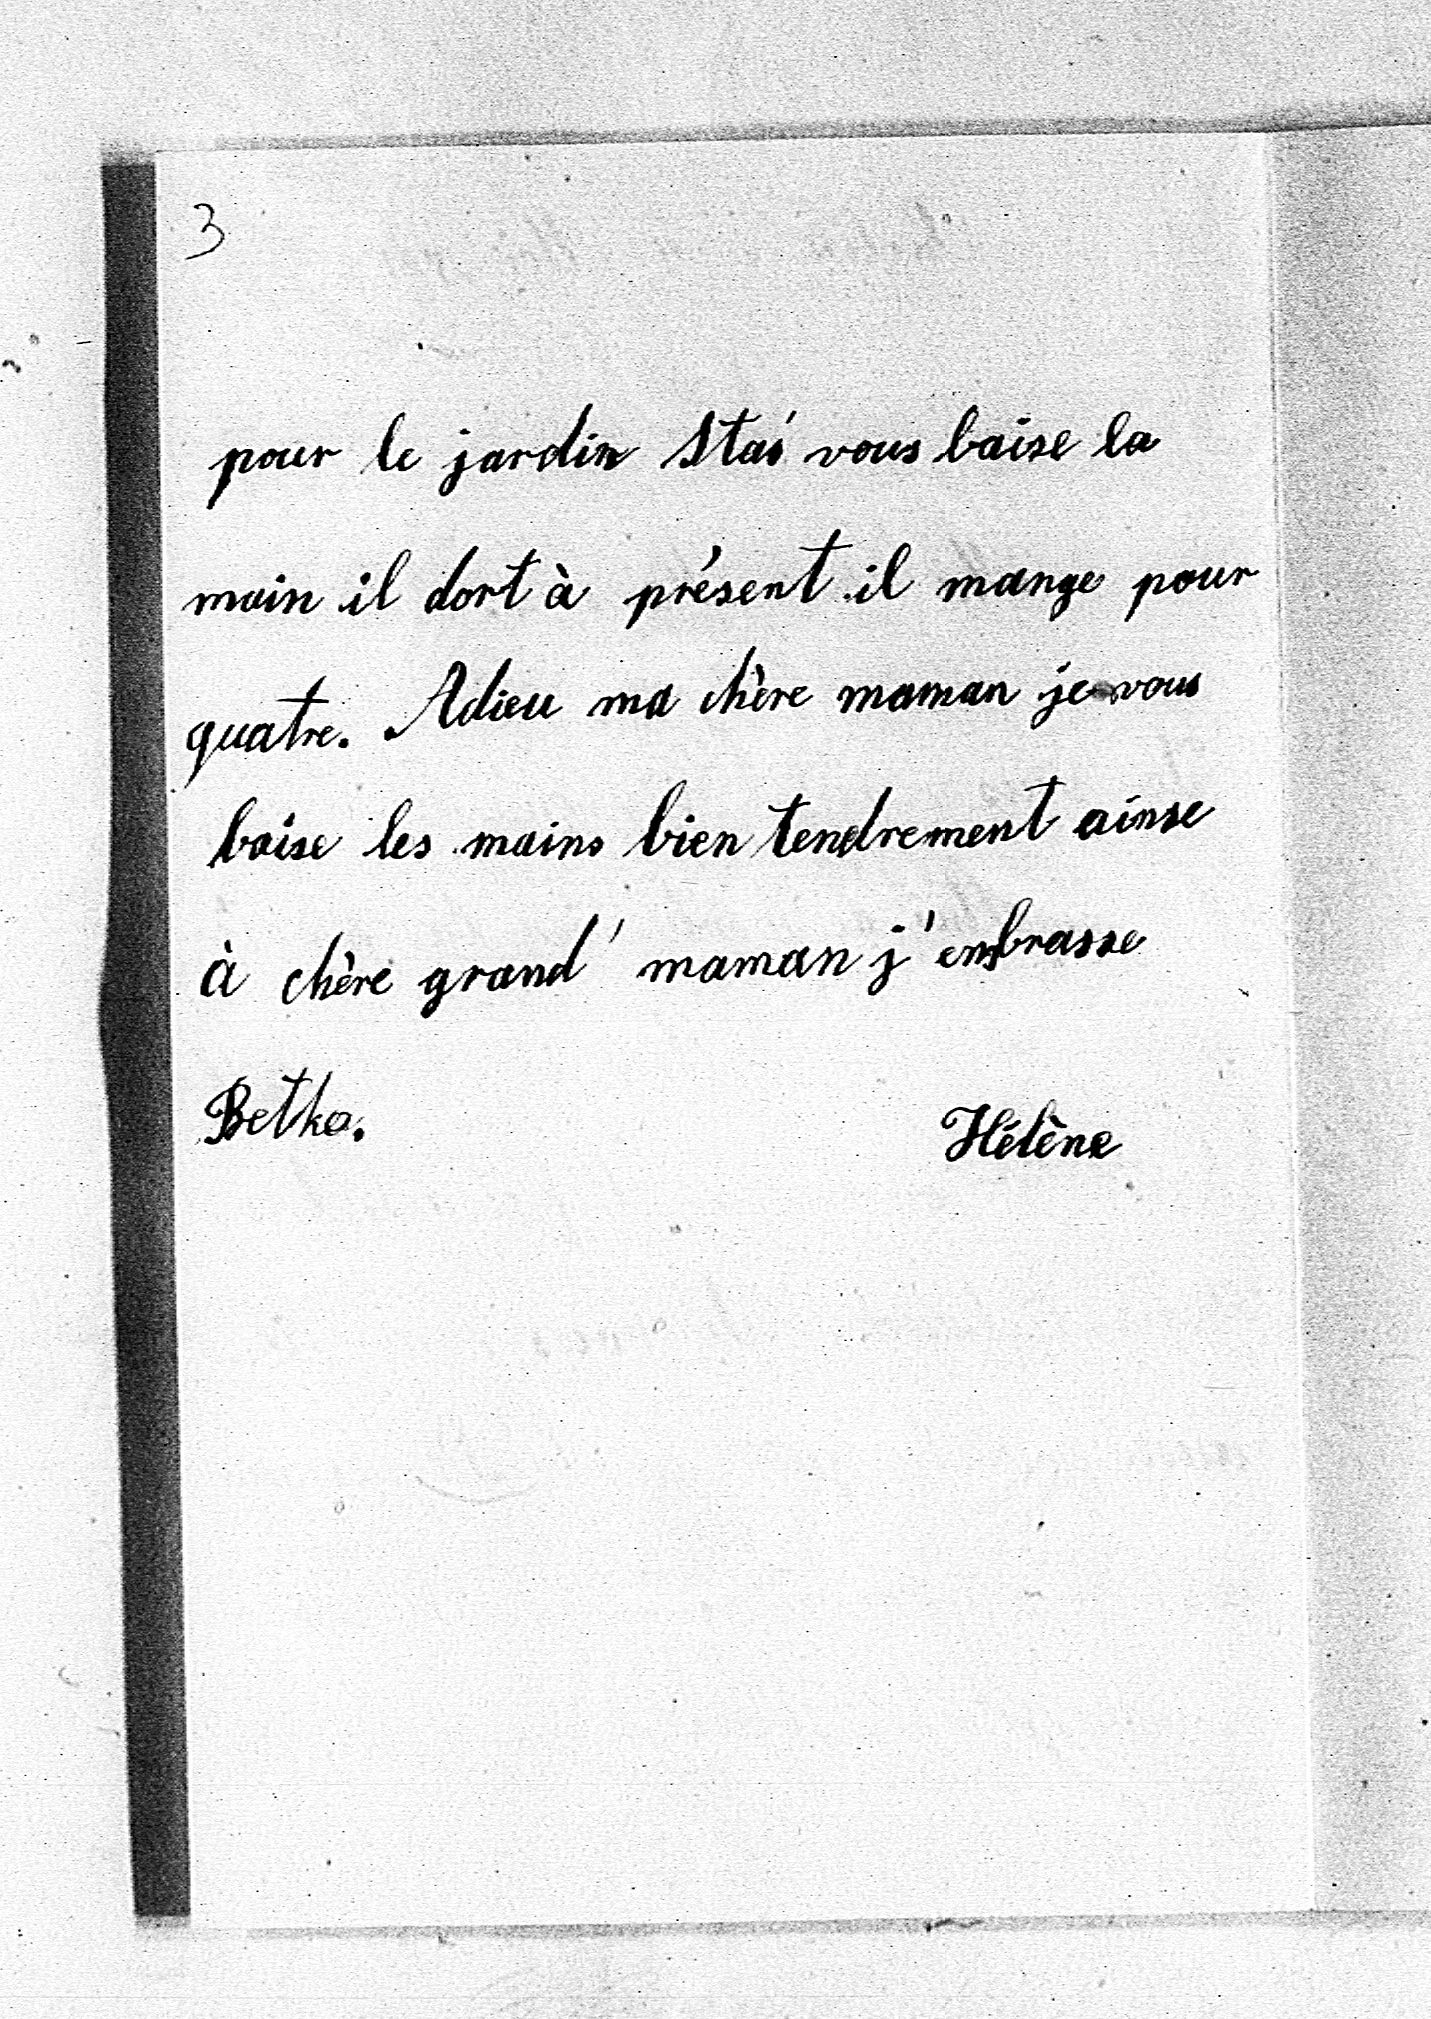 3
pour le jardin Staś vous baise la
main il dort à présent il mange pour
quatre. Adieu ma chère maman je vous
baise les mains bien tendrement ainse
à chère grand' maman j'embrasse
Betka. Hélène